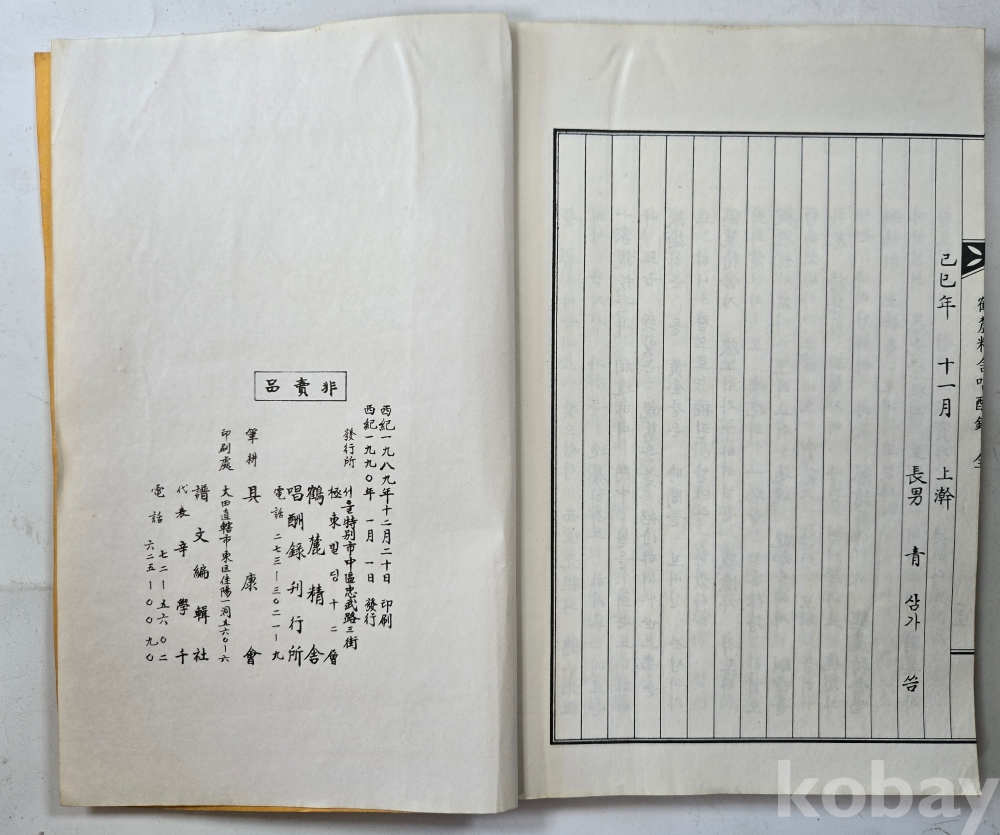 鶴麓精舍唱酬錄 全
己巳年 十一月 上澣
長男 青 상가 씀
非賣品
西紀一九八九年十二月二十日 印刷
西紀一九九〇年 一月 一日 發行
發行所 서울特別市中區忠武路三街
極東빌딩十二層
鶴麓精舍
唱酬錄刊行所
電話 二七三-三〇二一-九
筆耕 具康會
印刷處 大田直轄市東區佳陽一洞五六〇-六
譜文編輯社
代表 辛學千
電話 七二-五六〇二
六二五-〇〇九〇
kobay